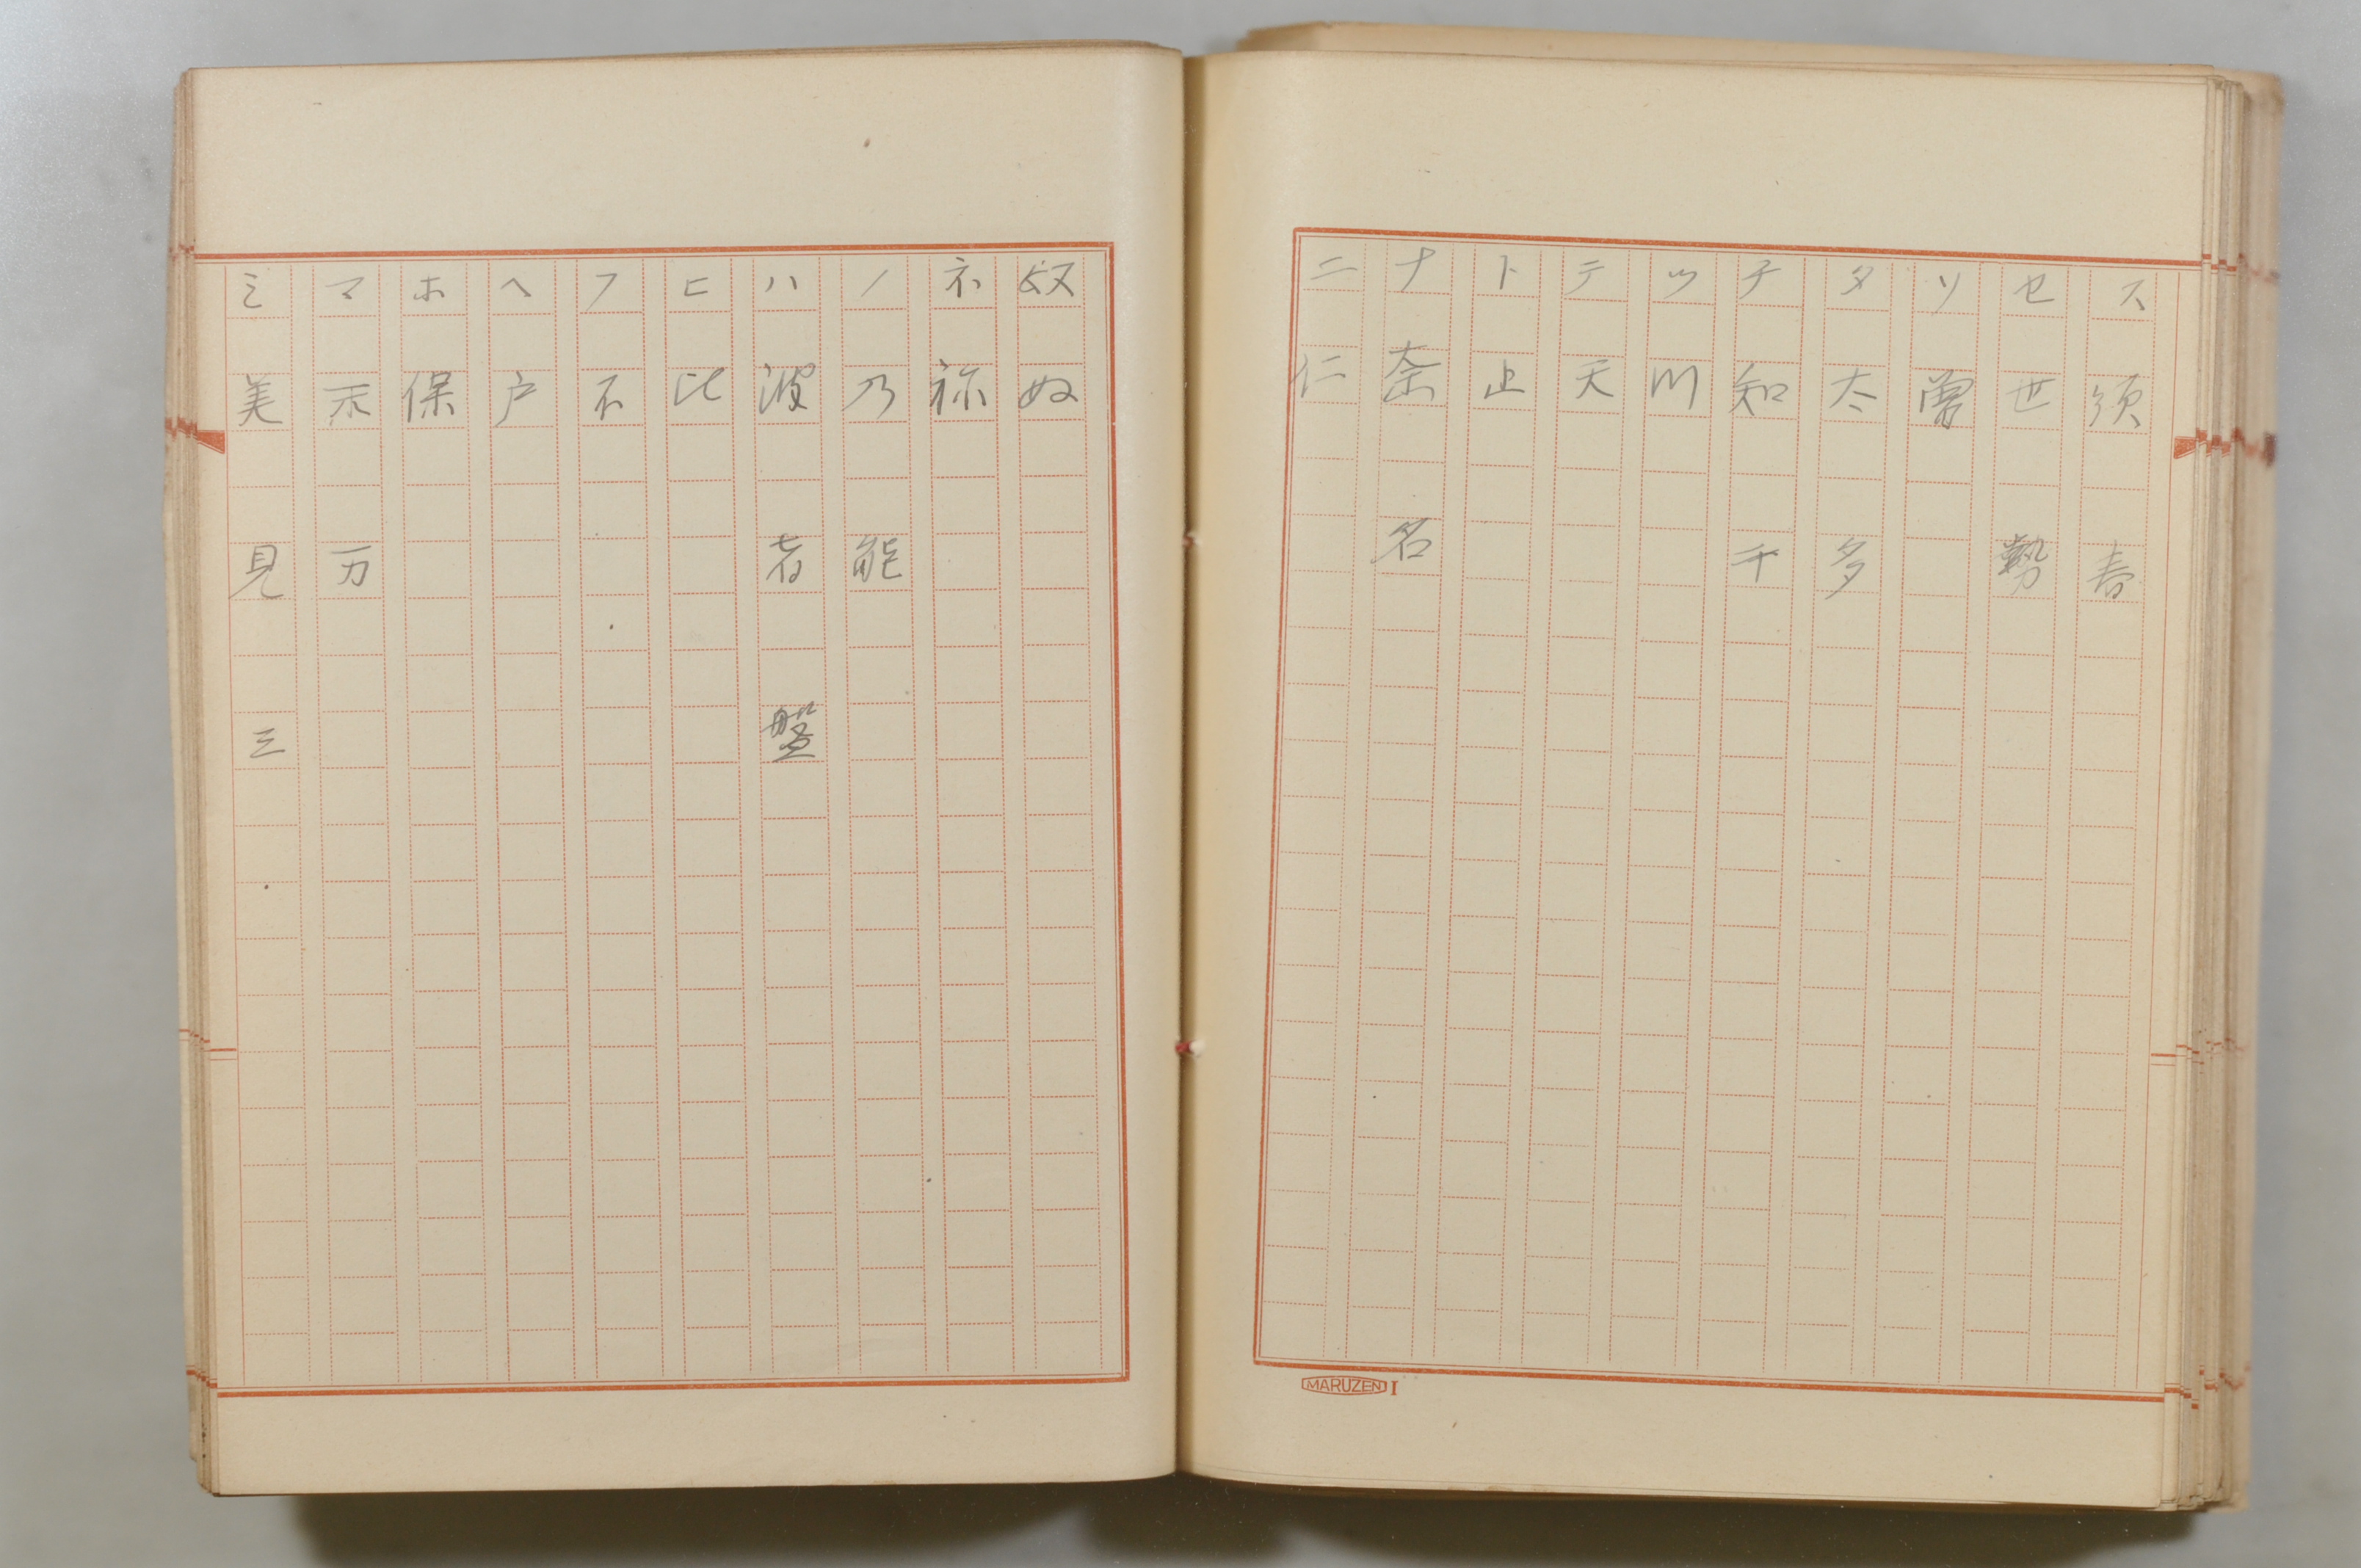 ス 須 春
セ 世 勢
ソ 曽
タ 太 多
チ 知 千
ツ 川
テ 天
ト 止
ナ 奈 名
ニ 仁
MARUZEN I
奴 ぬ
ネ 祢
ノ 乃 能
ハ 波 者 盤
ヒ 比
フ 不
ヘ 戸
ホ 保
マ 末 万
ミ 美 見 三